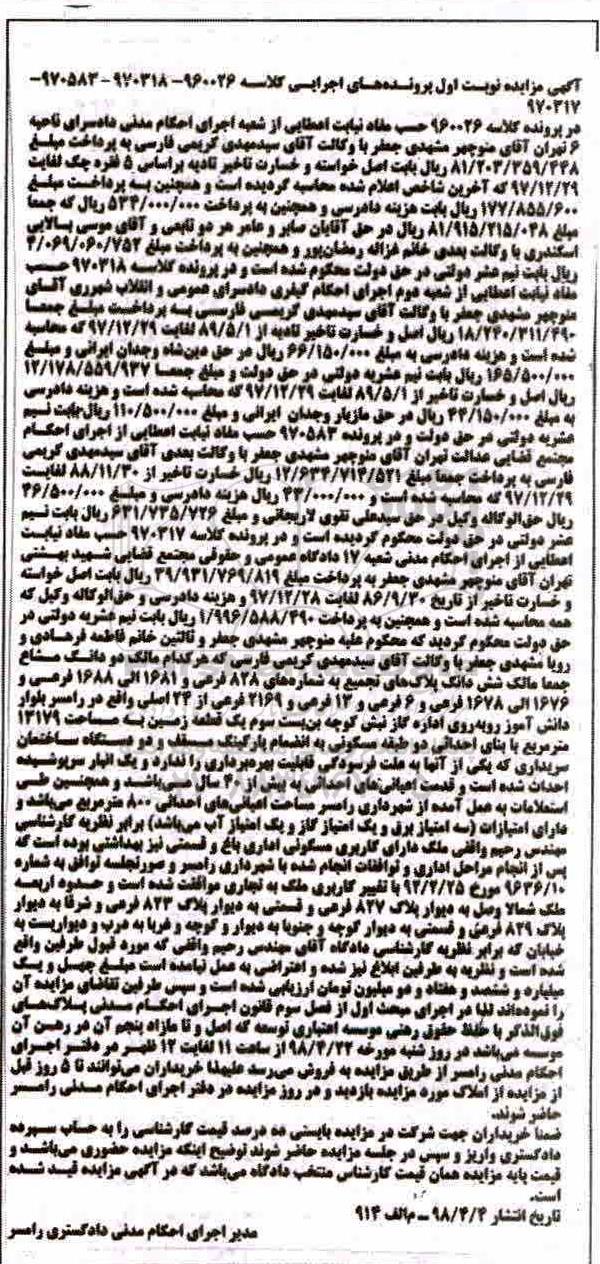 آگهی مزایده نوبت اول پرونده‌های اجرایی کلاسه ۹۶۰۰۲۶- ۹۷۰۳۱۸ - ۹۷۰۵۸۳-
۹۷۰۳۱۷
در پرونده کلاسه ۹۶۰۰۲۶ حسب مفاد نیابت اعطایی از شعبه اجرای احکام مدنی دادسرای ناحیه
۶ تهران آقای منوچهر مشهدی جعفر با وکالت آقای سیدمهدی کریمی فارسی به پرداخت مبلغ
۸۱/۲۰۳/۳۵۹/۴۴۸ ریال بابت اصل خواسته و خسارت تاخیر تادیه براساس ۵ فقره چک لغایت
۹۷/۱۲/۲۹ که آخرین شاخص اعلام شده محاسبه گردیده است و همچنین به پرداخت مبلغ
۱۷۷/۸۵۵/۶۰۰ ریال بابت هزینه دادرسی و همچنین به پرداخت ۵۳۴/۰۰۰/۰۰۰ ریال که جمعا
مبلغ ۸۱/۹۱۵/۲۱۵/۰۴۸ ریال در حق آقایان صابر و عامر هر دو تابعی و آقای موسی بسالایی
اسکندری با وکالت بعدی خانم غزاله رمضان‌پور و همچنین به پرداخت مبلغ ۴/۰۶۹/۰۶۰/۷۵۲
ریال بابت نیم عشر دولتی در حق دولت محکوم شده است و در پرونده کلاسه ۹۷۰۳۱۸ حسب
مفاد نیابت اعطایی از شعبه دوم اجرای احکام کیفری دادسرای عمومی و انقلاب شهرری آقای
منوچهر مشهدی جعفر با وکالت آقای سیدمهدی کریمی فارسی به پرداخت مبلغ جمعا
۱۸/۲۴۰/۳۱۱/۴۹۰ ریال اصل و خسارت تاخیر تادیه از ۸۹/۵/۱ لغایت ۹۷/۱۲/۲۹ که محاسبه
شده است و هزینه دادرسی به مبلغ ۶۶/۱۵۰/۰۰۰ ریال در حق دین‌شاه وجدان ایرانی و مبلغ
۱۶۵/۵۰۰/۰۰۰ ریال بابت نیم عشریه دولتی در حق دولت و مبلغ جمعا ۱۲/۱۷۸/۵۵۹/۹۳۷
ریال اصل و خسارت تاخیر از ۸۹/۵/۱ لغایت ۹۷/۱۲/۲۹ که محاسبه شده است و هزینه دادرسی
به مبلغ ۴۴/۱۵۰/۰۰۰ ریال در حق مازیار وجدان ایرانی و مبلغ ۱۱۰/۵۰۰/۰۰۰ ریال بابت نیم
عشریه دولتی در حق دولت و در پرونده ۹۷۰۵۸۳ حسب مفاد نیابت اعطایی از اجرای احکام
مجتمع قضایی عدالت تهران آقای منوچهر مشهدی جعفر با وکالت بعدی آقای سیدمهدی کریمی
فارسی به پرداخت جمعا مبلغ ۱۲/۶۳۴/۷۱۴/۵۲۱ ریال خسارت تاخیر از ۸۸/۱۱/۳۰ لغایت
۹۷/۱۲/۲۹ که محاسبه شده است و ۴۳/۰۰۰/۰۰۰ ریال هزینه دادرسی و مبلغ ۴۶/۵۰۰/۰۰۰
ریال حق‌الوکاله وکیل در حق سیدعلی تقوی لاریجانی و مبلغ ۶۳۱/۷۳۵/۷۲۶ ریال بابت نیم
عشر دولتی در حق دولت محکوم گردیده است و در پرونده کلاسه ۹۷۰۳۱۷ حسب مفاد نیابت
اعطایی از اجرای احکام مدنی شعبه ۱۷ دادگاه عمومی و حقوقی مجتمع قضایی شهید بهشتی
تهران آقای منوچهر مشهدی جعفر به پرداخت مبلغ ۳۹/۹۳۱/۷۶۹/۸۱۹ ریال بابت اصل خواسته
و خسارت تاخیر از تاریخ ۸۶/۹/۳۰ لغایت ۹۷/۱۲/۲۸ و هزینه دادرسی و حق‌الوکاله وکیل که
همه محاسبه شده است و همچنین به پرداخت ۱/۹۹۶/۵۸۸/۴۹۰ ریال بابت نیم عشریه دولتی در
حق دولت محکوم گردید که محکوم علیه منوچهر مشهدی جعفر و ثالثین خانم فاطمه فرهادی و
رویا مشهدی جعفر با وکالت آقای سیدمهدی کریمی فارسی که هرکدام مالک دو دانگ مشاع
جمعا مالک شش دانگ پلاک‌های تجمیع به شماره‌های ۸۲۸ فرعی و ۱۶۸۱ الی ۱۶۸۸ فرعی و
۱۶۷۶ الی ۱۶۷۸ فرعی و ۶ فرعی و ۱۳ فرعی و ۲۱۶۹ فرعی از ۲۴ اصلی واقع در رامسر بلوار
دانش آموز روبه‌روی اداره گاز نبش کوچه بن‌بست سوم یک قطعه زمین به مساحت ۱۳۱۷۹
مترمربع با بنای احداثی دو طبقه مسکونی به انضمام پارکینگ مسقف و دو دستگاه ساختمان
سریداری که یکی از آنها به علت فرسودگی قابلیت بهره‌برداری را ندارد و یک انبار سرپوشیده
احداث شده است و قدمت اعیانی‌های احداثی به بیش از ۴۰ سال می‌باشد و همچنین طی
استعلامات به عمل آمده از شهرداری رامسر مساحت اعیانی‌های احداثی ۸۰۰ مترمربع می‌باشد و
دارای امتیازات (سه امتیاز برق و یک امتیاز گاز و یک امتیاز آب می‌باشد) برابر نظریه کارشناسی
مهندس رحیم واقفی ملک دارای کاربری مسکونی اداری باغ و قسمتی نیز بهداشتی بوده است که
پس از انجام مراحل اداری و توافقات انجام شده با شهرداری رامسر و صورتجلسه توافق به شماره
۹۶۳۶/۱۰ مورخ ۹۲/۲/۲۵ با تغییر کاربری ملک به تجاری موافقت شده است و حدود اربعه
ملک شمالا وصل به دیوار پلاک ۸۲۷ فرعی و قسمتی به دیوار پلاک ۸۲۳ فرعی و شرقا به دیوار
پلاک ۸۲۹ فرعی و قسمتی به دیوار کوچه و جنوبا به دیوار و کوچه و غربا به درب و دیواریست به
خیابان که برابر نظریه کارشناسی دادگاه آقای مهندس رحیم واقفی که مورد قبول طرفین واقع
شده است و نظریه به طرفین ابلاغ نیز شده و اعتراضی به عمل نیامده است مبلغ چهل و یک
میلیارد و ششصد و هفتاد و دو میلیون تومان ارزیابی شده است و سپس طرفین تقاضای مزایده آن
را نموده‌اند لذا در اجرای مبحث اول از فصل سوم قانون اجرای احکام مدنی پلاک‌های
فوق‌الذکر با حفظ حقوق رهنی موسسه اعتباری توسعه که اصل و تا مازاد پنجم آن در رهن آن
موسسه می‌باشد در روز شنبه مورخه ۹۸/۴/۲۲ از ساعت ۱۱ لغایت ۱۲ ظهر در دفتر اجرای
احکام مدنی رامسر از طریق مزایده به فروش می‌رسد علیهذا خریداران می‌توانند تا ۵ روز قبل
از مزایده از املاک مورد مزایده بازدید و در روز مزایده در دفتر اجرای احکام مدنی رامسر
حاضر شوند.
ضمنا خریداران جهت شرکت در مزایده بایستی ده درصد قیمت کارشناسی را به حساب سپرده
دادگستری واریز و سپس در جلسه مزایده حاضر شوند توضیح اینکه مزایده حضوری می‌باشد و
قیمت پایه مزایده همان قیمت کارشناس منتخب دادگاه می‌باشد که در آگهی مزایده قید شده
است.
تاریخ انتشار ۹۸/۴/۴ – م/الف ۹۱۴
مدیر اجرای احکام مدنی دادگستری رامسر